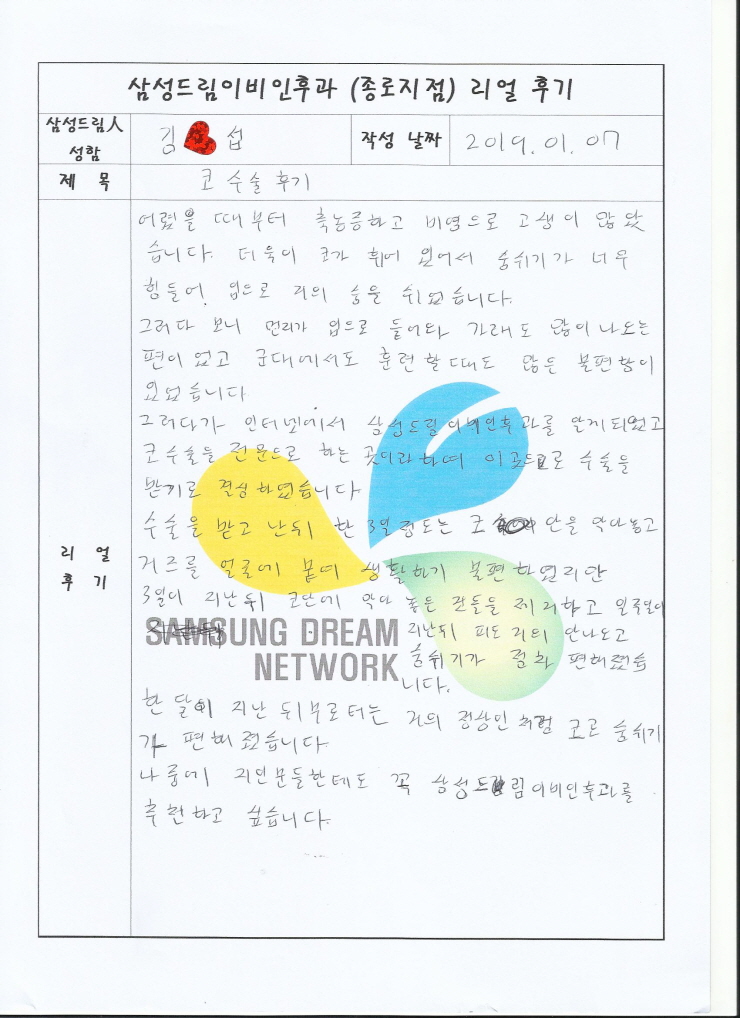 삼성드림이비인후과 (종로지점) 리얼 후기
삼성드림人 성함
김 섭
작성 날짜
2019.01.07
제 목
코 수술 후기
리 얼 후 기
어렸을 때부터 축농증하고 비염으로 고생이 많았
습니다. 더욱이 코가 휘어 있어서 숨쉬기가 너무
힘들어 입으로 거의 숨을 쉬었습니다.
그러다 보니 먼지가 입으로 들어와 가래도 많이 나오는
편이었고 군대에서도 훈련할때도 많은 불편함이
있었습니다
그러다가 인터넷에서 삼성드림이비인후과를 알게되었고
코수술을 전문으로 하는 곳이라하여 이곳으로 수술을
받기로 결심하였습니다
수술을 받고 난뒤 한 3일정도는 코 안을 막아놓고
거즈를 얼굴에 붙여 생활하기 불편하였지만
3일이 지난뒤 코안에 막아 놓은 관들을 제거하고 일주일이
지난뒤 피도 거의 안나오고
숨쉬기가 점차 편해졌습
니다.
한 달이 지난 뒤부로터는 거의 정상인처럼 코로 숨쉬기
가 편해졌습니다
나중에 지인분들한테도 꼭 삼성드림이비인후과를
추천하고 싶습니다.
SAMSUNG DREAM
NETWORK